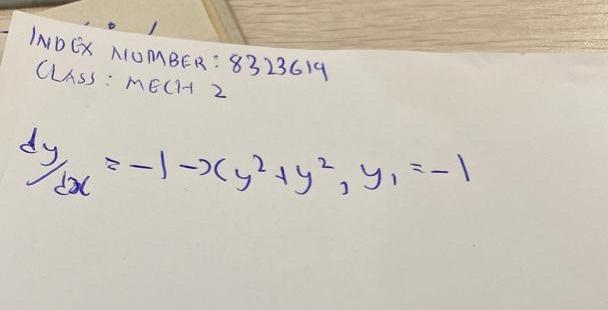 INDEX NUMBER: 8323619
CLASS: MECH 2
dy/dx = -1 - xy² + y², y₁ = -1